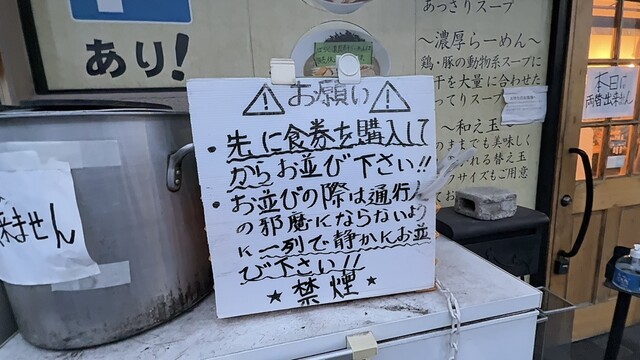 P
あり!
⚠お願い⚠
・先に食券を購入して
からお並び下さい!!
・お並びの際は通行人
の邪魔にならないよう
に一列で静かにお並
び下さい!!
★禁煙★
ません
あっさりスープ
～濃厚らーめん～
鶏・豚の動物系スープに
干を大量に合わせた
ってりスープ
～和え玉
のままでも美味しく
れる替え玉
クサイズもご用意
本日
両替出来ません